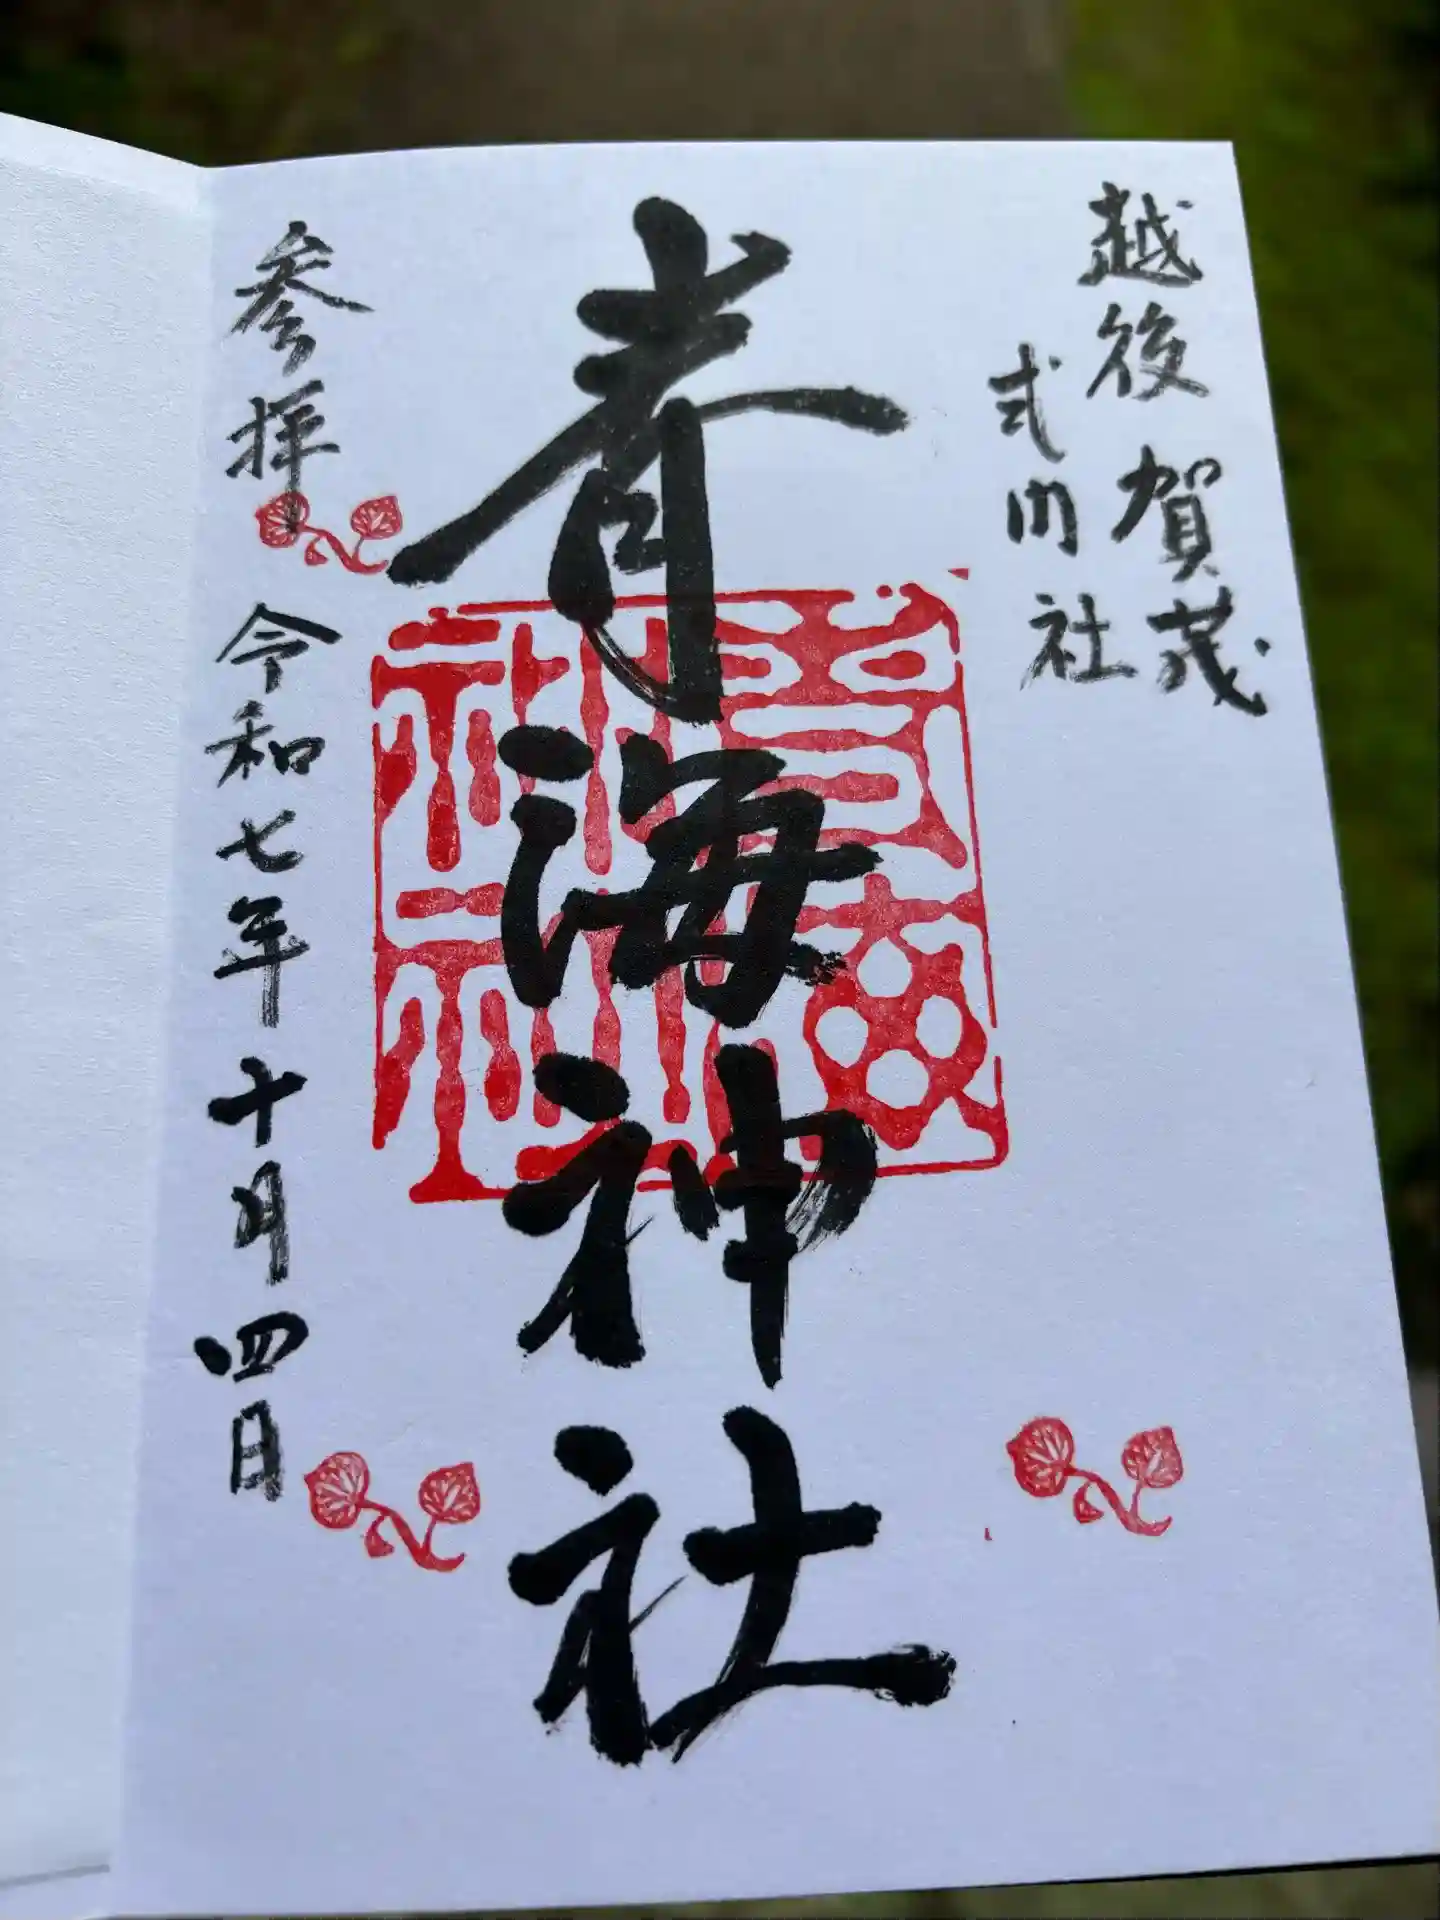 越後賀茂
式内社
青海神社
参拝
令和七年十月四日